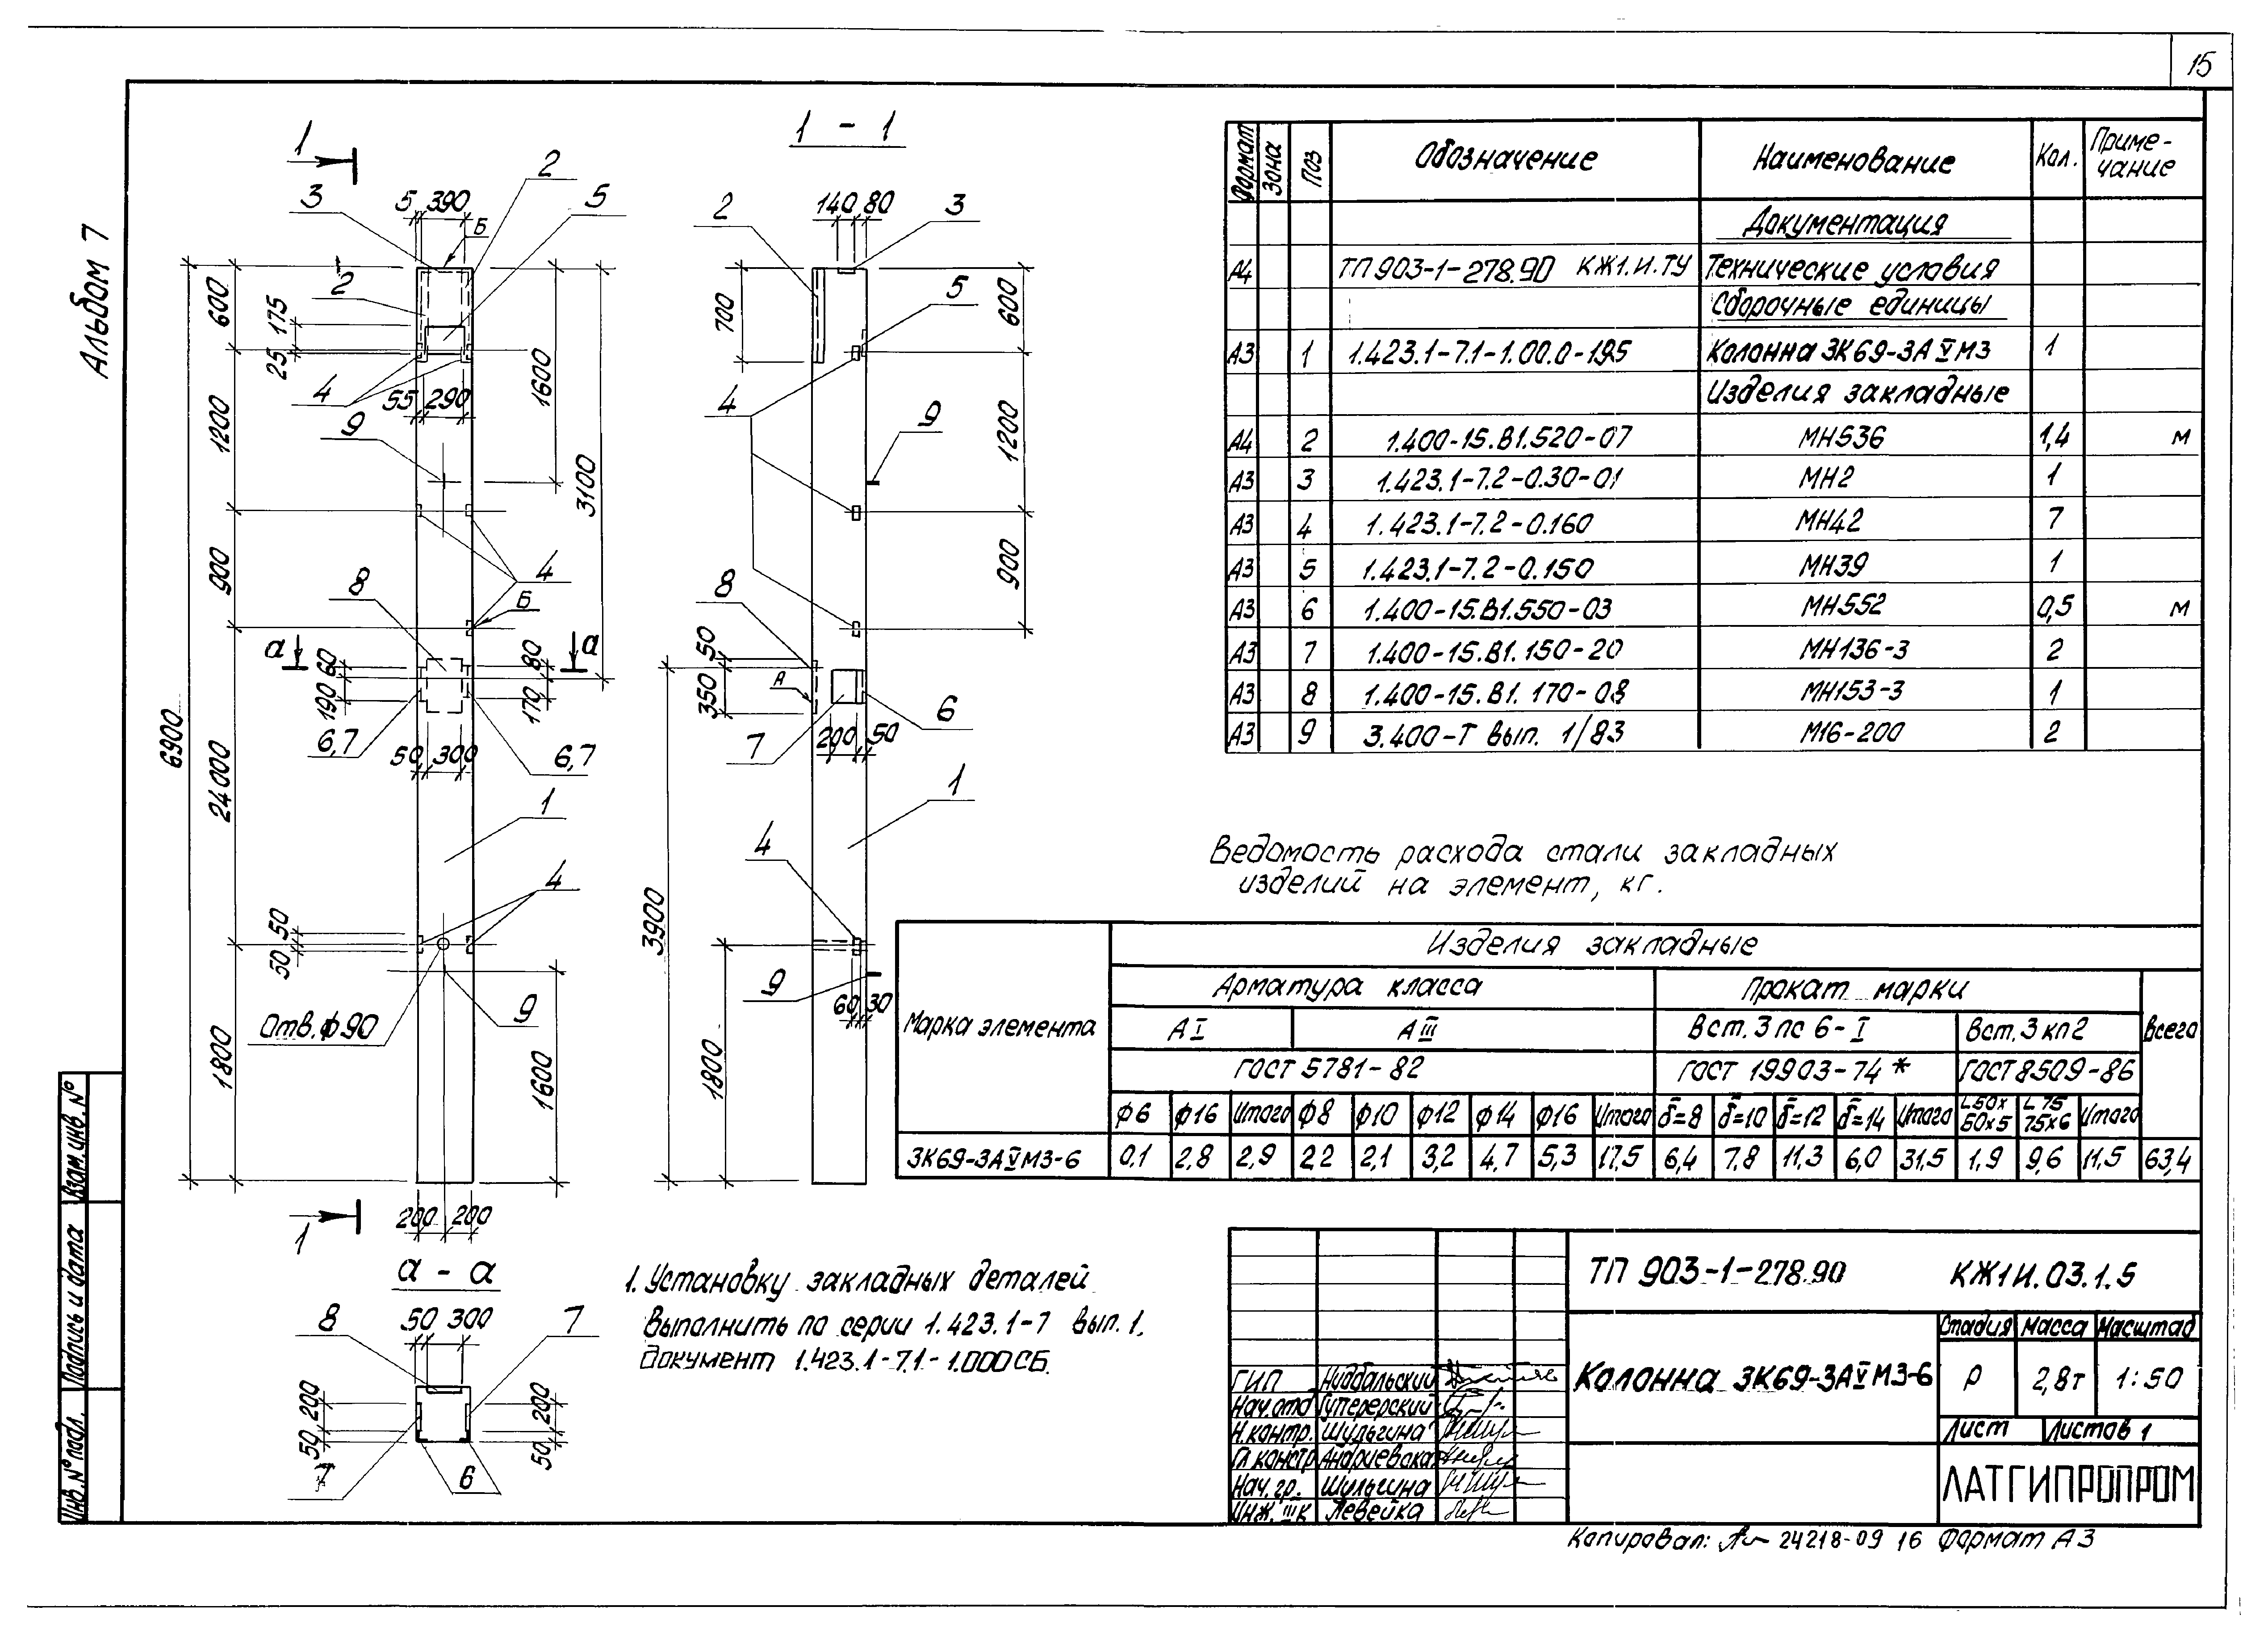 15
Альбом 7
1
1 - 1
3
5 390
Б
2
5
2
140 80
3
600
175
25
2
4
55 290
1200
9
1600
3100
900
8
4
Б
а
а
60
190
80
170
6,7
50 300
6,7
6900
24000
1
4
50
50
Отв.ф90
9
1800
1600
1
200 200
700
5
600
4
9
1200
900
8
50
350
А
6
7
200 50
3900
1
4
9
60 30
1800
а - а
8
50 300
7
200
50
200
50
7
6
1. Установку закладных деталей
выполнить по серии 1.423.1-7 вып. 1,
документ 1.423.1-7.1-1.000СБ.
Формат Зона Поз Обозначение Наименование Кол. Приме-
чание
Документация
А4 ТП 903-1-278.90 КЖ1.И.ТУ Технические условия
Сборочные единицы
А3 1 1.423.1-7.1-1.00.0-195 Колонна 3К69-3АⅤМ3 1
Изделия закладные
А4 2 1.400-15.В1.520-07 МН536 1,4 м
А3 3 1.423.1-7.2-0.30-01 МН2 1
А3 4 1.423.1-7.2-0.160 МН42 7
А3 5 1.423.1-7.2-0.150 МН39 1
А3 6 1.400-15.В1.550-03 МН552 0,5 м
А3 7 1.400-15.В1.150-20 МН136-3 2
А3 8 1.400-15.В1.170-08 МН153-3 1
А3 9 3.400-Т вып. 1/83 М16-200 2
Ведомость расхода стали закладных
изделий на элемент, кг.
Марка элемента
Изделия закладные
Арматура класса Прокат марки
Всего
А Ⅰ А Ⅲ Вст.3 пс 6-Ⅰ Вст.3 кп2
ГОСТ 5781-82 ГОСТ 19903-74* ГОСТ 8509-86
ф6 ф16 Итого ф8 ф10 ф12 ф14 ф16 Итого δ=8 δ=10 δ=12 δ=14 Итого L50х50х5 L75 75х6 Итого
3К69-3АⅤМ3-6 0,1 2,8 2,9 2,2 2,1 3,2 4,7 5,3 17,5 6,4 7,8 11,3 6,0 31,5 1,9 9,6 11,5 63,4
ТП 903-1-278.90 КЖ1И.03.1.5
Колонна 3К69-3АⅤМ3-6
Стадия Масса Масштаб
Р 2,8т 1:50
Лист Листов 1
ЛАТГИПРОПРОМ
ГИП Нидбальский
Нач.отд Гуперерский
Н.контр. Шульгина
Гл констр Андриевская
Нач.гр. Шульгина
Инж. Ⅲк Левейка
Взам.инв.№
Подпись и дата
Инв.№подл.
Копировал: 24218-09 16 Формат А3